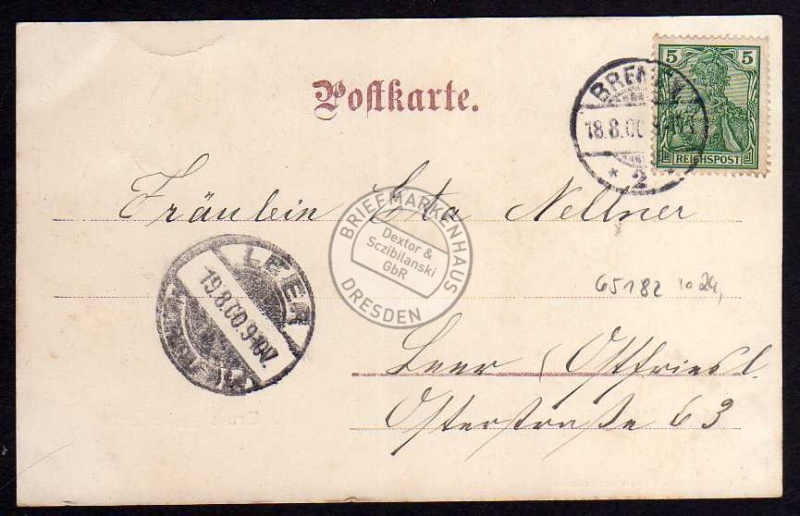 Postkarte.
5 5
REICHSPOST
BREMEN
18.8.00
* 2
Fräulein Eta Nellner
BRIEFMARKENHAUS
Dextor &
Sczibilanski
GbR
DRESDEN
LEER
19.8.00.9-10V.
65182 10 24,
Leer (Ostfriesl.
Osterstraße 63